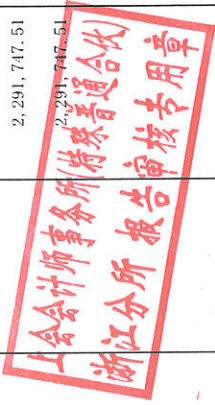 2,291,747.51
2,291,747.51
上会会计师事务所(特殊普通合伙)
浙江分所 报告审核专用章